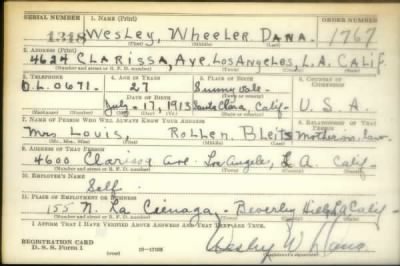 SERIAL NUMBER 1. NAME (Print) ORDER NUMBER
1318 Wesley, Wheeler DANA. 1767
(First) (Middle) (Last)
2. ADDRESS (Print)
4624 CLARISSA, Ave. LOS ANGELES, L.A. CALIF.
(Number and street or R. F. D. number) (Town) (County) (State)
3. TELEPHONE 4. AGE IN YEARS 5. PLACE OF BIRTH 6. COUNTRY OF CITIZENSHIP
O.L. 0671. 27 Sunnyvale-
DATE OF BIRTH (Town or county)
July-17, 1913 Santa Clara, Calif- U.S.A.
(Exchange) (Number) (Mo.) (Day) (Yr.) (State or country)
7. NAME OF PERSON WHO WILL ALWAYS KNOW YOUR ADDRESS 8. RELATIONSHIP OF THAT PERSON
Mrs Louis, Rollen, Bleits Mother in law
(Mr., Mrs., Miss) (First) (Middle) (Last)
9. ADDRESS OF THAT PERSON
4600 Clarissa Ave Los Angeles, L A Calif-
(Number and street or R. F. D. number) (Town) (County) (State)
10. EMPLOYER'S NAME
Self
11. PLACE OF EMPLOYMENT OR BUSINESS
155 N. La Cienaga- Beverly Hills, LA Calif-
(Number and street or R. F. D. number) (Town) (County) (State)
I AFFIRM THAT I HAVE VERIFIED ABOVE ANSWERS AND THAT THEY ARE TRUE.
REGISTRATION CARD
D. S. S. Form 1 (over) 16-17105 Wesley W Dana
(Registrant's signature)